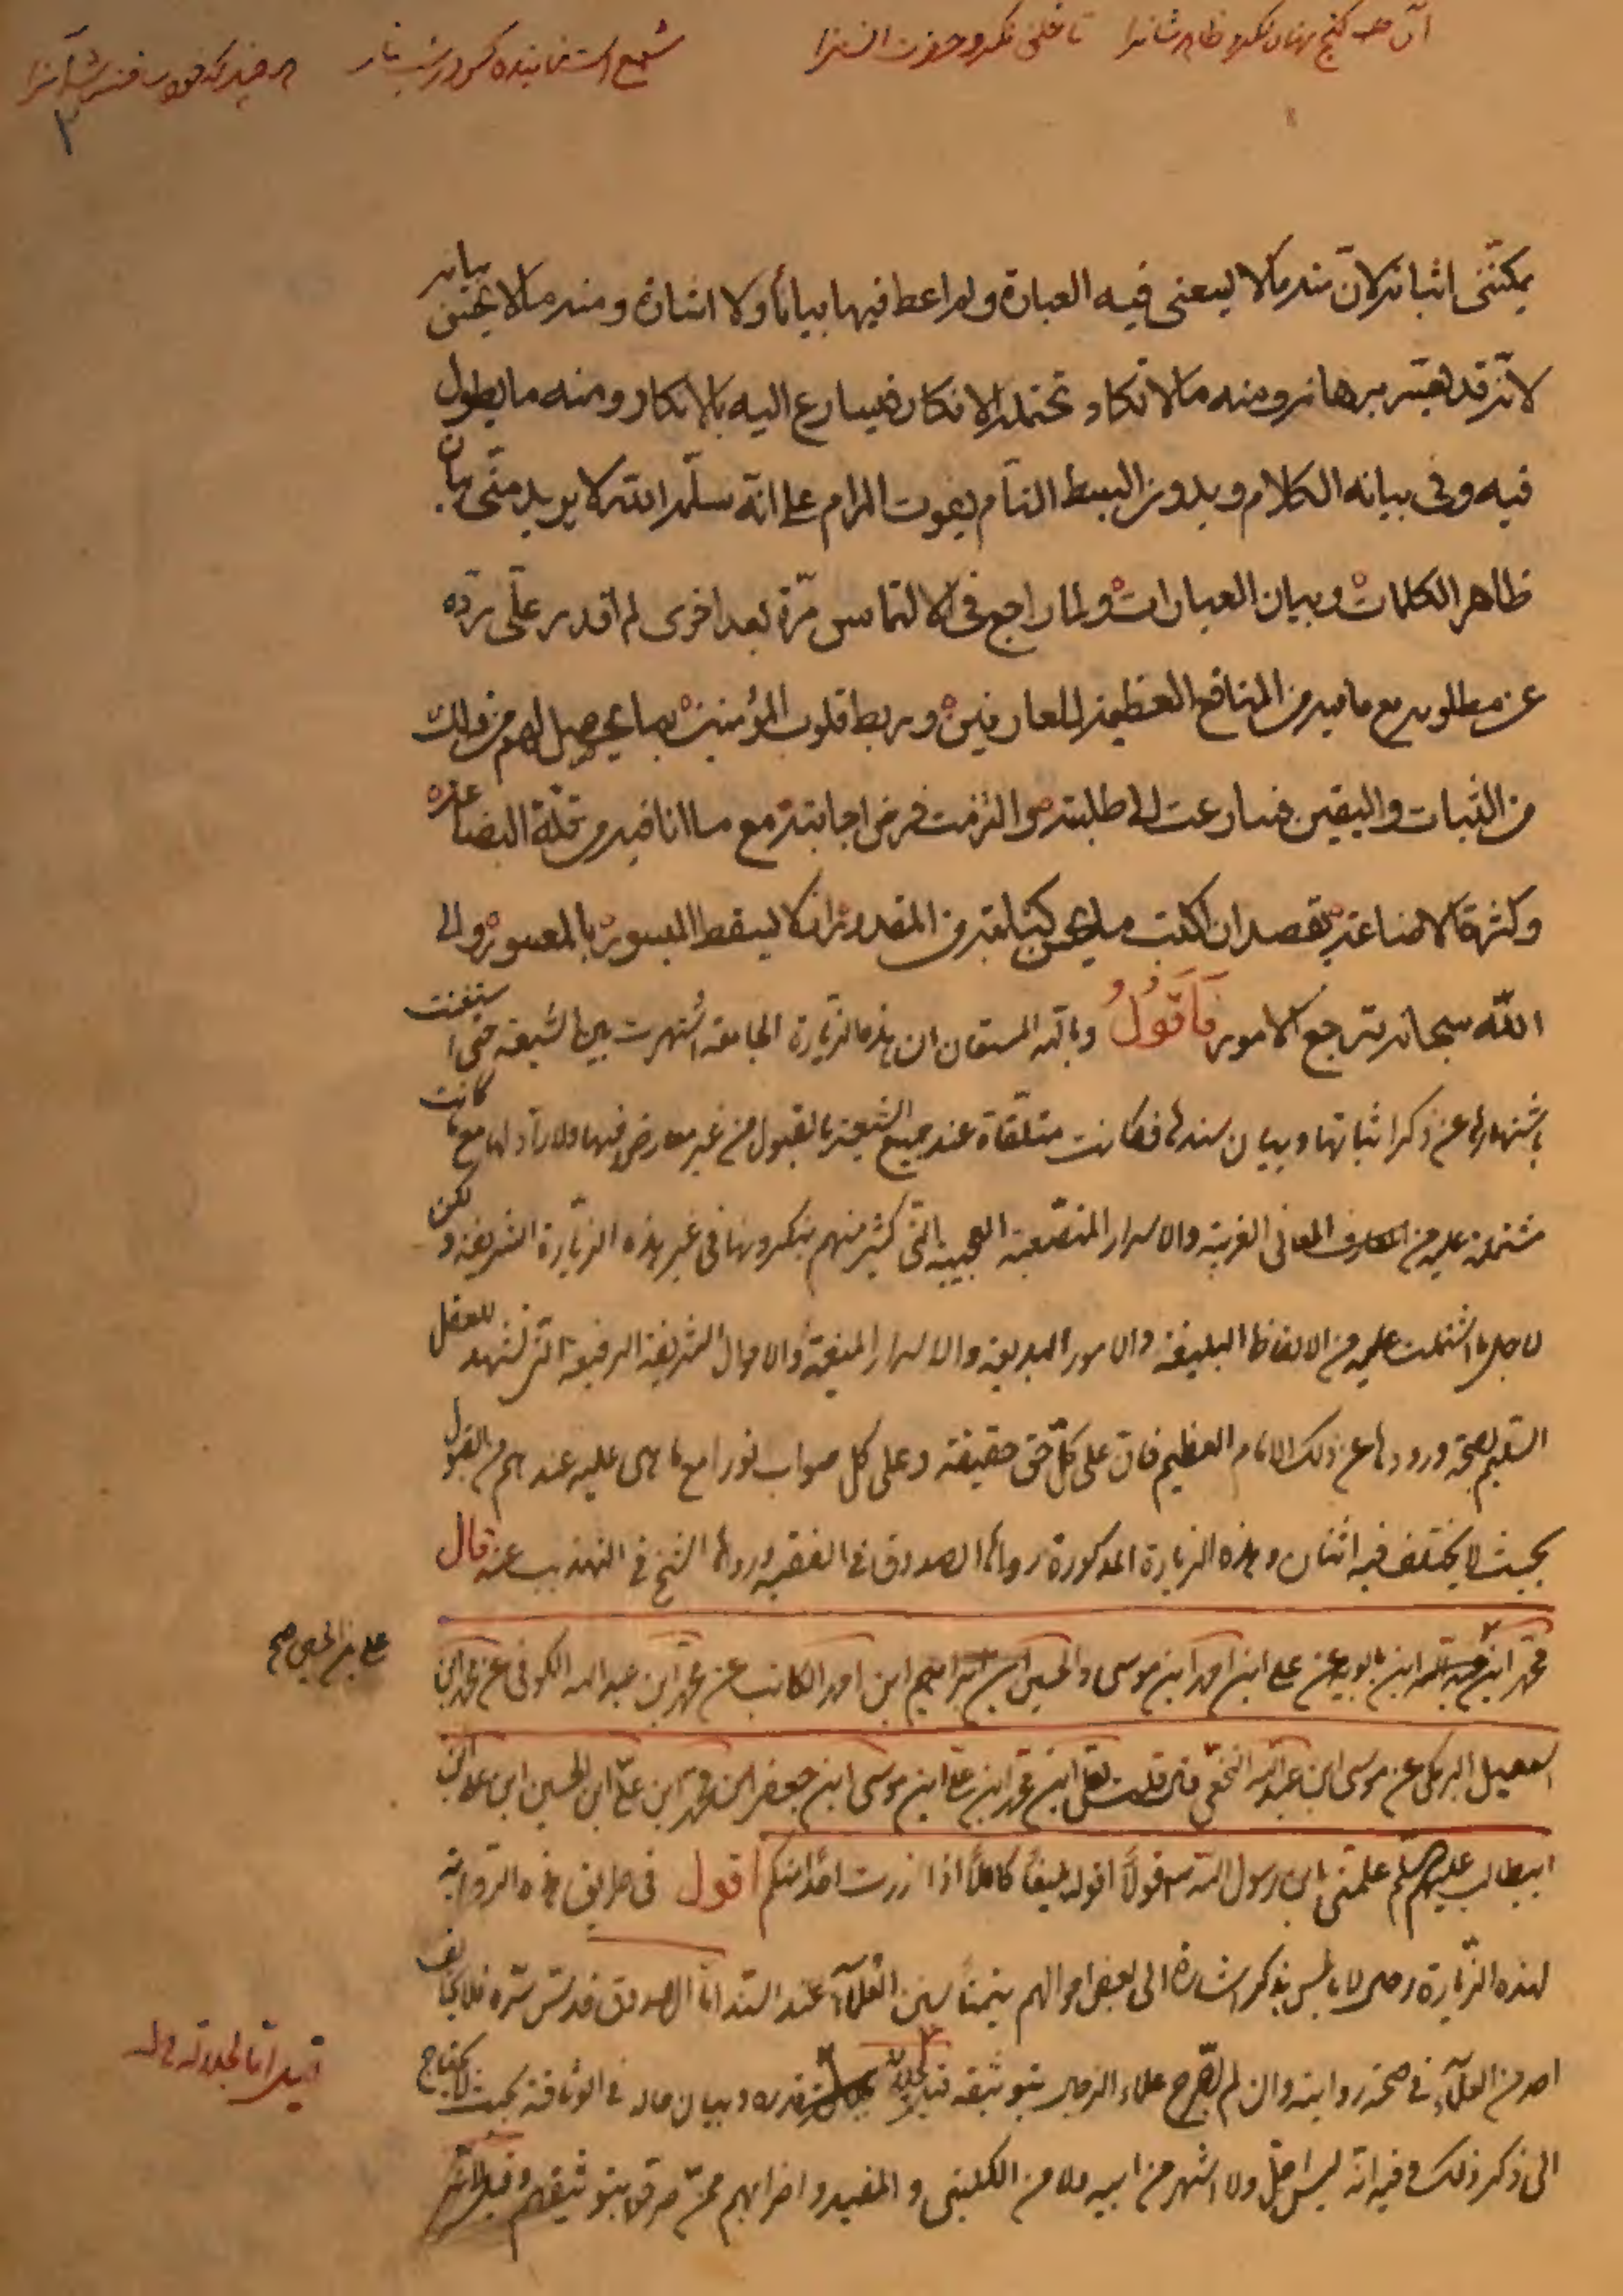 يمكنني اثباته لان منه ما لا يسعني فيه العبارة ولم اعط فيها بيانا ولا اشارة ومنه ما لا يحسن بيانه
لانه قد يعسر برهانه ومنه ما لا تكاد تحتمله الافكار فيسارع اليه بالانكار ومنه ما يطول
فيه وفى بيانه الكلام وبدون البسط التام يفوت المرام على انه سلمه الله لا يريد منّى بيان
ظاهر الكلمات وبيان العبارات ولما راجع فى الالتماس مرّة بعد اخرى لم اقدر على ردّه
عن مطلوبه مع ما فيه من المنافع العظيمة للعارفين وربط قلوب المؤمنين بما يحصل لهم من ذلك
من الثبات واليقين فسارعت الى طلبته والتزمت فرض اجابته مع ما انا فيه من قلّة البضاعة
وكثرة الاضاعة بقصد ان اكتب ما يحسن كتابته من المقدور اذ لا يسقط الميسور بالمعسور والى
الله سبحانه ترجع الامور فَاَقُولُ وبالله المستعان ان هذه الزيارة الجامعة اشتهرت بين الشيعة حتى استغنت
باشتهارها عن ذكر اثباتها وبيان سندها فكانت متلقاة عند جميع الشيعة بالقبول من غير معارض فيها ولا رادّ لها مع ما كانت
مشتملة عليه من المعانى الغريبة والاسرار المتصعبة العجيبة التى كثير منهم ينكرونها فى غير هذه الزيارة الشريفة ولكن
لاجل ما اشتملت عليه من الالفاظ البليغة والامور البديعة والاسرار المنيعة والاحوال الشريفة الرفيعة التى تشهد للعقل
السليم بصحة ورودها عن ذلك الامام العظيم فان على كلّ حق حقيقة وعلى كل صواب نورا مع ما هى عليه عندهم من القبول
بحيث لا يختلف فيه اثنان وهذه الزيارة المذكورة رواها الصدوق فى الفقيه ورواها الشيخ فى التهذيب عنه قال
محمد ابن ابن بابويه عن على ابن احمد ابن موسى والحسين ابن ابراهيم ابن احمد الكاتب عن محمد ابن عبد الله الكوفى عن محمد ابن
على بن الحسين صح
اسمعيل البرمكى عن موسى ابن عبد الله النخعى قال قلت لعلى ابن محمد ابن على ابن موسى ابن جعفر ابن محمد ابن على ابن الحسين ابن على ابن
ابيطالب عليهم السلم علمنى يابن رسول الله ص قولا اقوله بليغا كاملا اذا زرت احدا منكم اقول فى طريق هذه الرواية
لهذه الزيارة رجال لا باس بذكر اشارة الى بعض احوالهم تيمنا بسنن العلمآء عند السند اما الصدوق قدس سره فلا يخالف
احد من العلمآء فى صحة رواية وان لم يصرح علماء الرجال بتوثيقه قيل لجلالة قدره وبيان حاله فى الوثاقة بحيث لا يحتاج
الى ذكر ذلك وفيه انه ليس اجلّ ولا اشهر من ابيه ولا من الكلينى والمفيد واضرابهم ممن صرحوا بتوثيقهم وقيل